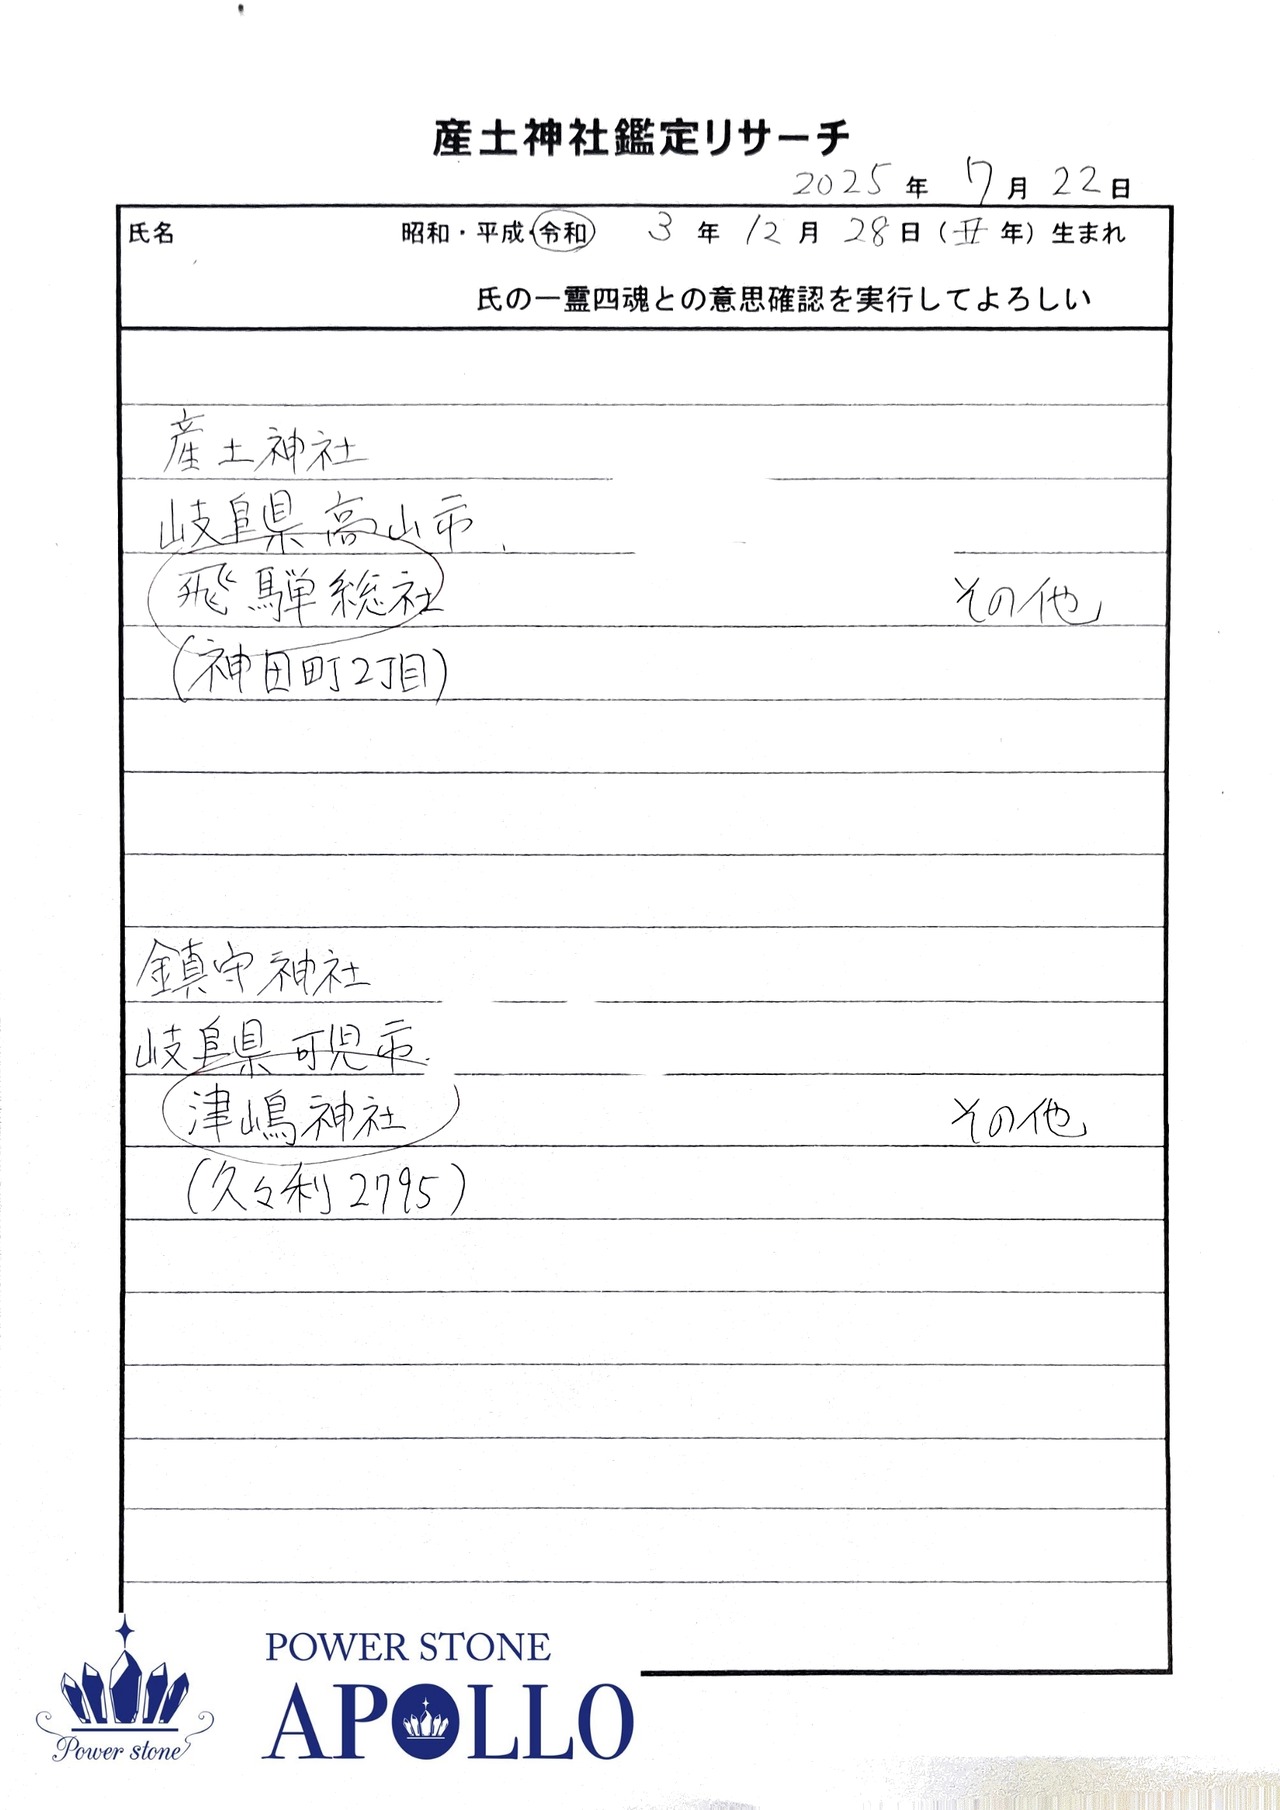 産土神社鑑定リサーチ
2025年 7月 22日
氏名 昭和・平成・令和 3年 12月 28日(丑年)生まれ
氏の一霊四魂との意思確認を実行してよろしい
産土神社
岐阜県高山市
飛騨総社 その他
(神田町2丁目)
鎮守神社
岐阜県可児市
津嶋神社 その他
(久々利2795)
POWER STONE
APOLLO
Power stone